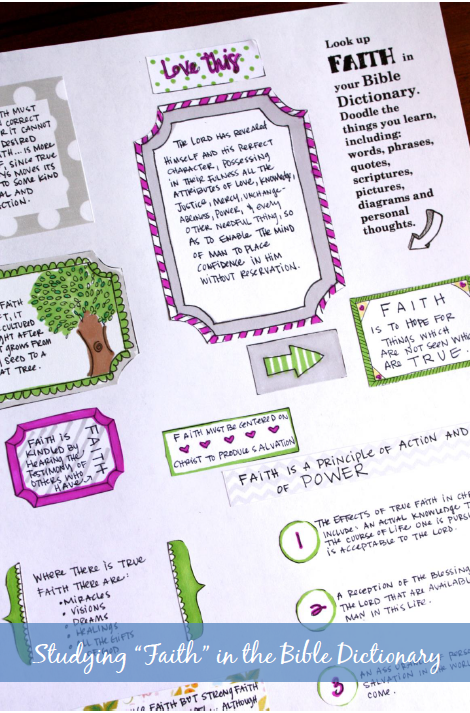 Love this
Look up
FAITH in
your Bible
Dictionary.
Doodle the
things you learn,
including:
words, phrases,
quotes,
scriptures,
pictures,
diagrams and
personal
thoughts.
TH MUST
CORRECT
R IT CANNOT
DESIRED
TH... IS MORE
F, SINCE TRUE
YS MOVES ITS
TO SOME KIND
AL AND
CTION.
THE LORD HAS REVEALED
HIMSELF AND HIS PERFECT
CHARACTER, POSSESSING
IN THEIR FULNESS ALL THE
ATTRIBUTES OF LOVE, KNOWLEDGE,
JUSTICE, MERCY, UNCHANGE-
ABLENESS, POWER, & EVERY
OTHER NEEDFUL THING, SO
AS TO ENABLE THE MIND
OF MAN TO PLACE
CONFIDENCE IN HIM
WITHOUT RESERVATION.
FAITH
FT, IT
CULTURED
GHT AFTER
T GROWS FROM
SEED TO A
AT TREE.
FAITH
IS TO HOPE FOR
THINGS WHICH
ARE NOT SEEN WHICH
ARE TRUE
FAITH IS
KINDLED BY
HEARING THE
TESTIMONY OF
OTHERS WHO
HAVE →
FAITH
FAITH MUST BE CENTERED ON
CHRIST TO PRODUCE SALVATION
FAITH IS A PRINCIPLE OF ACTION AND
OF POWER
1
THE EFFECTS OF TRUE FAITH IN CH
INCLUDE: AN ACTUAL KNOWLEDGE T
THE COURSE OF LIFE ONE IS PURS
IS ACCEPTABLE TO THE LORD.
WHERE THERE IS TRUE
FAITH THERE ARE:
• MIRACLES
• VISIONS
• DREAMS
• HEALINGS
• ALL THE GIFTS
2
A RECEPTION OF THE BLESSING
THE LORD THAT ARE AVAILABL
MAN IN THIS LIFE.
Studying “Faith” in the Bible Dictionary
3
AN ASSURANCE OF PERS
SALVATION IN THE WOR
COME.
FAITH BUT STRONG FAITH
ALTHOUGH